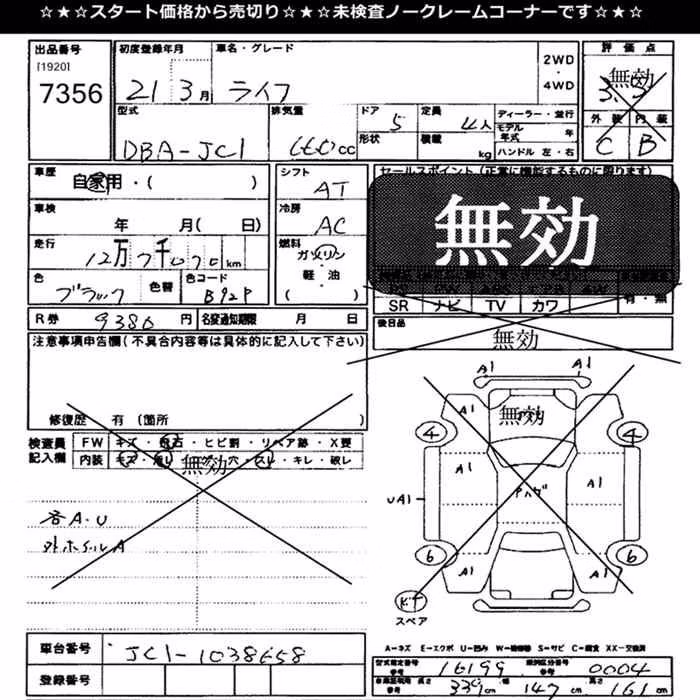 ☆★☆★スタート価格から売切り☆★☆★未検査ノークレームコーナーです☆★☆
出品番号 初度登録年月 車名・グレード 2WD・4WD 評価点
[1920]
7356 21 3月 ライフ 無効 3.5
型式 排気量 ドア 5 定員 4人 ディーラー・並行 外装 内装
モデル年式 年
DBA-JC1 660cc 形状 積載 kg ハンドル 左・右 C B
車歴 自家用・( ) シフト AT セールスポイント(正常に機能するものに限ります)
車検 年 月( 日) 冷房 AC 無効
走行 12万7千070km 燃料 ガソリン・軽・油
色 ブラック 色替 色コード B92P ( )
SR ナビ TV カワ 有・無
R券 9380円 名変通知期限 月 日 後日品 無効
注意事項申告欄(不具合内容等は具体的に記入して下さい)
修復歴 有(箇所
検査員記入欄 FW キズ・飛石・ヒビ割・リペア跡・X要
内装 キズ・汚レ・コゲ・穴・スレ・キレ・破レ
無効
各A.U
外ホイルA
A1 A1
A1 無効
4 4
A1 A1
UA1 Pハゲ
6 6
A1 A1
スペア
A-キズ E-エクボ U-凹み W-補修跡 S-サビ C-腐食 XX-交換済
車台番号 JC1-1038658
登録番号
型式指定番号 参考 16199 類別区分番号 参考 0004
車両諸元 参考 長さ 339cm 幅 147cm 高さ 161cm